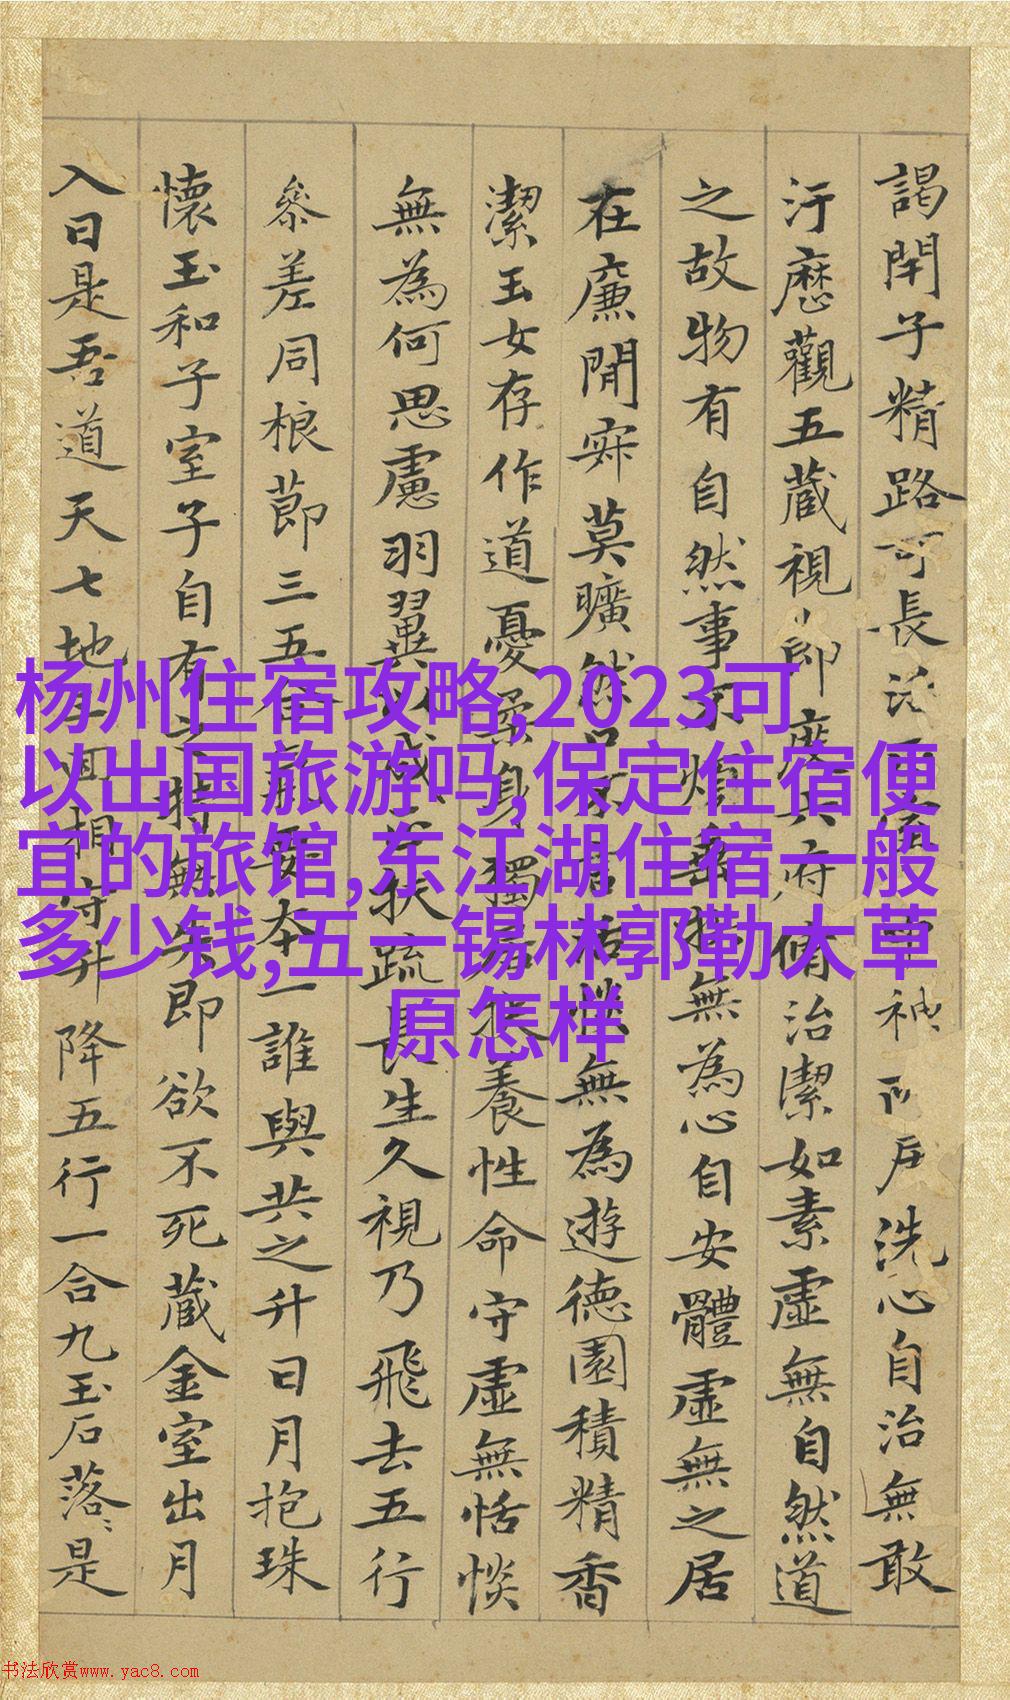 謁閇子精路可長洗心自治無敢
汙歷觀五藏視節度六府脩治潔如素虛無自然道
之故物有自然事不煩垂拱無為心自安體虛無之居
在廉閒寂莫曠然口不言恬惔無為遊德園積精香
潔玉女存作道憂柔身獨居扶養性命守虛無恬惔
無為何思慮羽翼以成正扶疏長生久視乃飛去五行
參差同根節三五合氣要本一誰與共之升日月抱珠
懷玉和子室子自有之持無失即欲不死藏金室出月
入日是吾道天七地三回相守升降五行一合九玉石落〻是
杨州住宿攻略,2023可
以出国旅游吗,保定住宿便
宜的旅馆,东江湖住宿一般
多少钱,五一锡林郭勒大草
原怎样
书法欣赏www.yac8.com